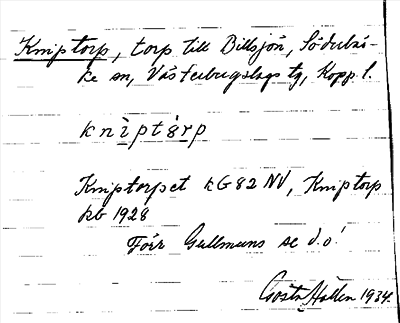 Kniptorp, torp till Billsjön, Söderbär-
ke sn, Västerbergslags tg, Kopp. l.
kniptårp
Kniptorpet kG82 NV, Kniptorp
kb 1928
Förr Gullmuns se d.o!
Gösta Hallen 1934.